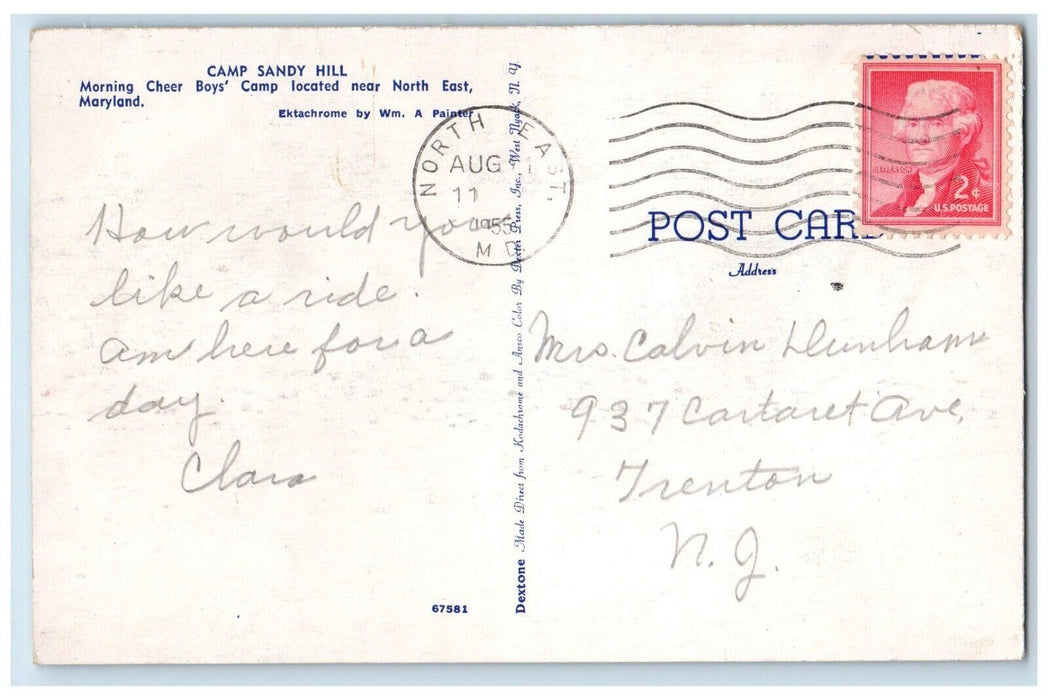 CAMP SANDY HILL
Morning Cheer Boys' Camp located near North East,
Maryland.
Ektachrome by Wm. A Painter
How would you
like a ride.
am here for a
day.
Clara
67581
Dextone Made Direct from Kodachrome and Ansco Color By Dexter Press, Inc., West Nyack, N. Y.
NORTH EAST,
AUG
11
1955
MD
JEFFERSON
2¢
U.S. POSTAGE
POST CARD
Address
Mrs. Calvin Dunham
937 Cartaret Ave,
Trenton
N. J.